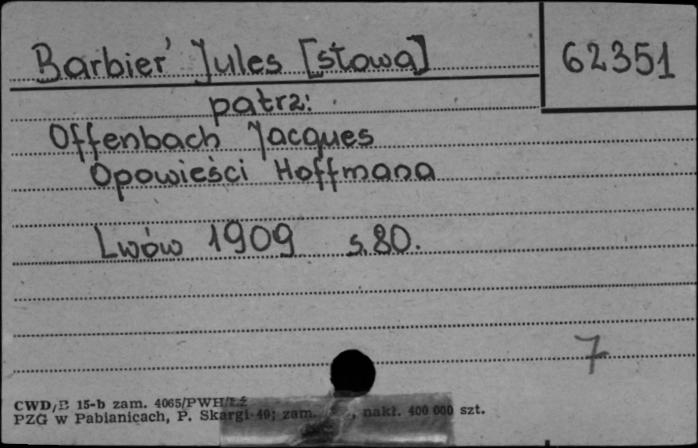 Barbier Jules [słowa]
62351
patrz:
Offenbach Jacques
Opowieści Hoffmana
Lwów 1909 s.80.
7
CWD/B 15-b zam. 4065/PWH/ŁŻ
PZG w Pabianicach, P. Skargi 40; zam. nakł. 400 000 szt.